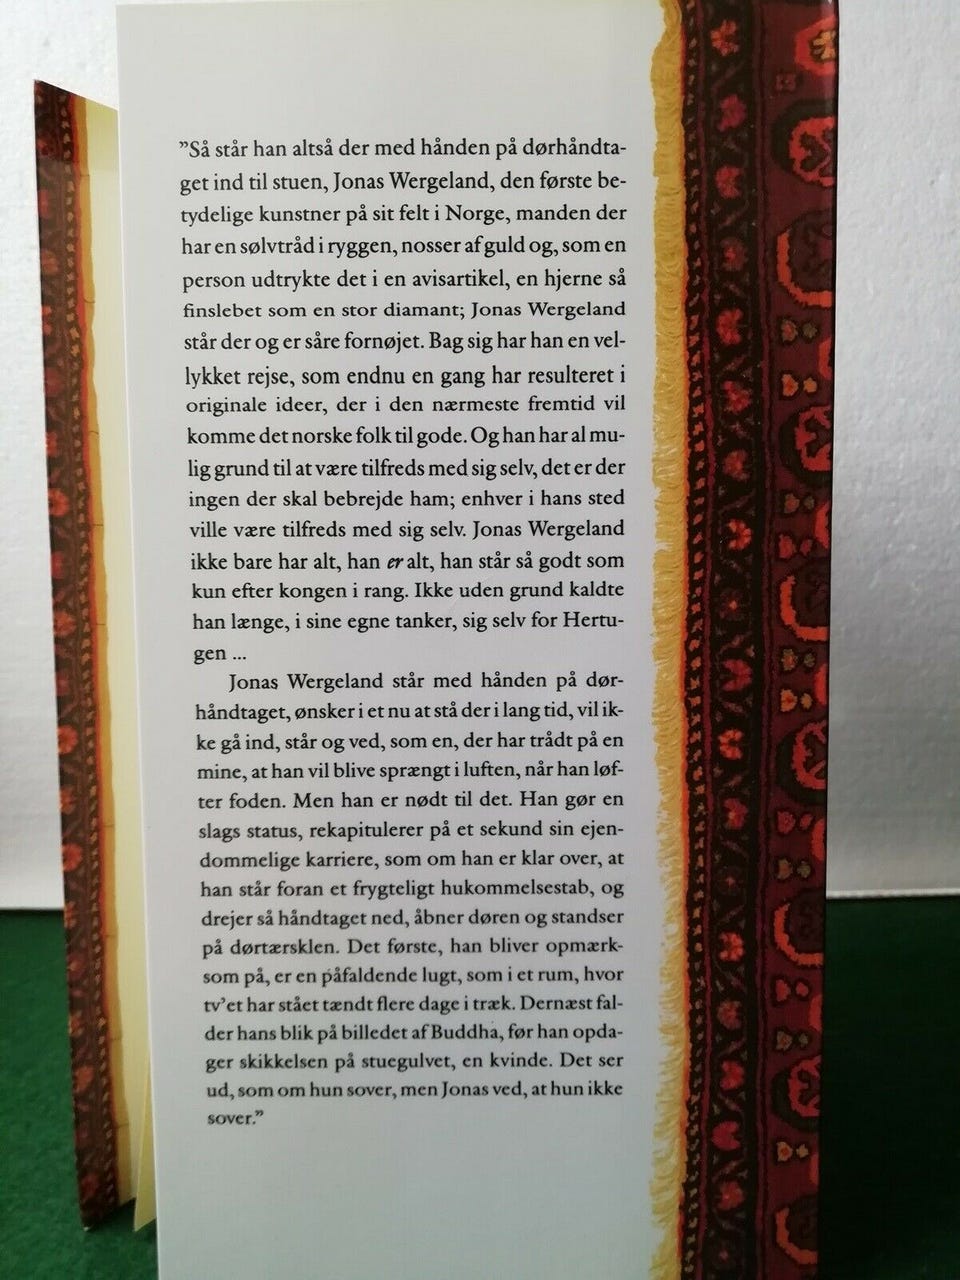 ”Så står han altså der med hånden på dørhåndta-
get ind til stuen, Jonas Wergeland, den første be-
tydelige kunstner på sit felt i Norge, manden der
har en sølvtråd i ryggen, nosser af guld og, som en
person udtrykte det i en avisartikel, en hjerne så
finslebet som en stor diamant; Jonas Wergeland
står der og er såre fornøjet. Bag sig har han en vel-
lykket rejse, som endnu en gang har resulteret i
originale ideer, der i den nærmeste fremtid vil
komme det norske folk til gode. Og han har al mu-
lig grund til at være tilfreds med sig selv, det er der
ingen der skal bebrejde ham; enhver i hans sted
ville være tilfreds med sig selv. Jonas Wergeland
ikke bare har alt, han er alt, han står så godt som
kun efter kongen i rang. Ikke uden grund kaldte
han længe, i sine egne tanker, sig selv for Hertu-
gen ...
Jonas Wergeland står med hånden på dør-
håndtaget, ønsker i et nu at stå der i lang tid, vil ik-
ke gå ind, står og ved, som en, der har trådt på en
mine, at han vil blive sprængt i luften, når han løf-
ter foden. Men han er nødt til det. Han gør en
slags status, rekapitulerer på et sekund sin ejen-
dommelige karriere, som om han er klar over, at
han står foran et frygteligt hukommelsestab, og
drejer så håndtaget ned, åbner døren og standser
på dørtærsklen. Det første, han bliver opmærk-
som på, er en påfaldende lugt, som i et rum, hvor
tv’et har stået tændt flere dage i træk. Dernæst fal-
der hans blik på billedet af Buddha, før han opda-
ger skikkelsen på stuegulvet, en kvinde. Det ser
ud, som om hun sover, men Jonas ved, at hun ikke
sover.”